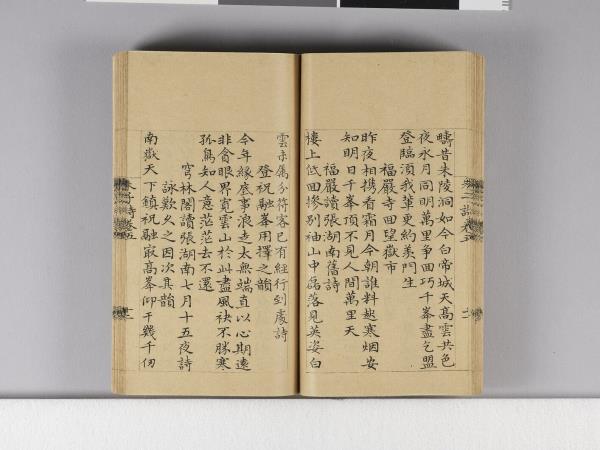 疇昔朱陵洞如今白帝城天高雲共色
夜永月同明萬里爭回巧千峯盡乞盟
登臨須我輩更約羨門生
福嚴寺回望嶽市
昨夜相携看霜月今朝誰料起寒烟安
知明日千峯頂不見人間萬里天
福嚴讀張湖南舊詩
樓上低回慘別袖山中磊落見英姿白
雲未屬分符客已有經行到處詩
登祝融峯用擇之韻
今年緣底事浪走太無端直以心期遠
非貪眼界寬雲山於此盡風袂不勝寒
孤鳥知人意茫茫去不還
穹林閣讀張湖南七月十五夜詩
詠歎久之因次其韻
南嶽天下鎮祝融最高峯仰干幾千仞
朱子詩卷五